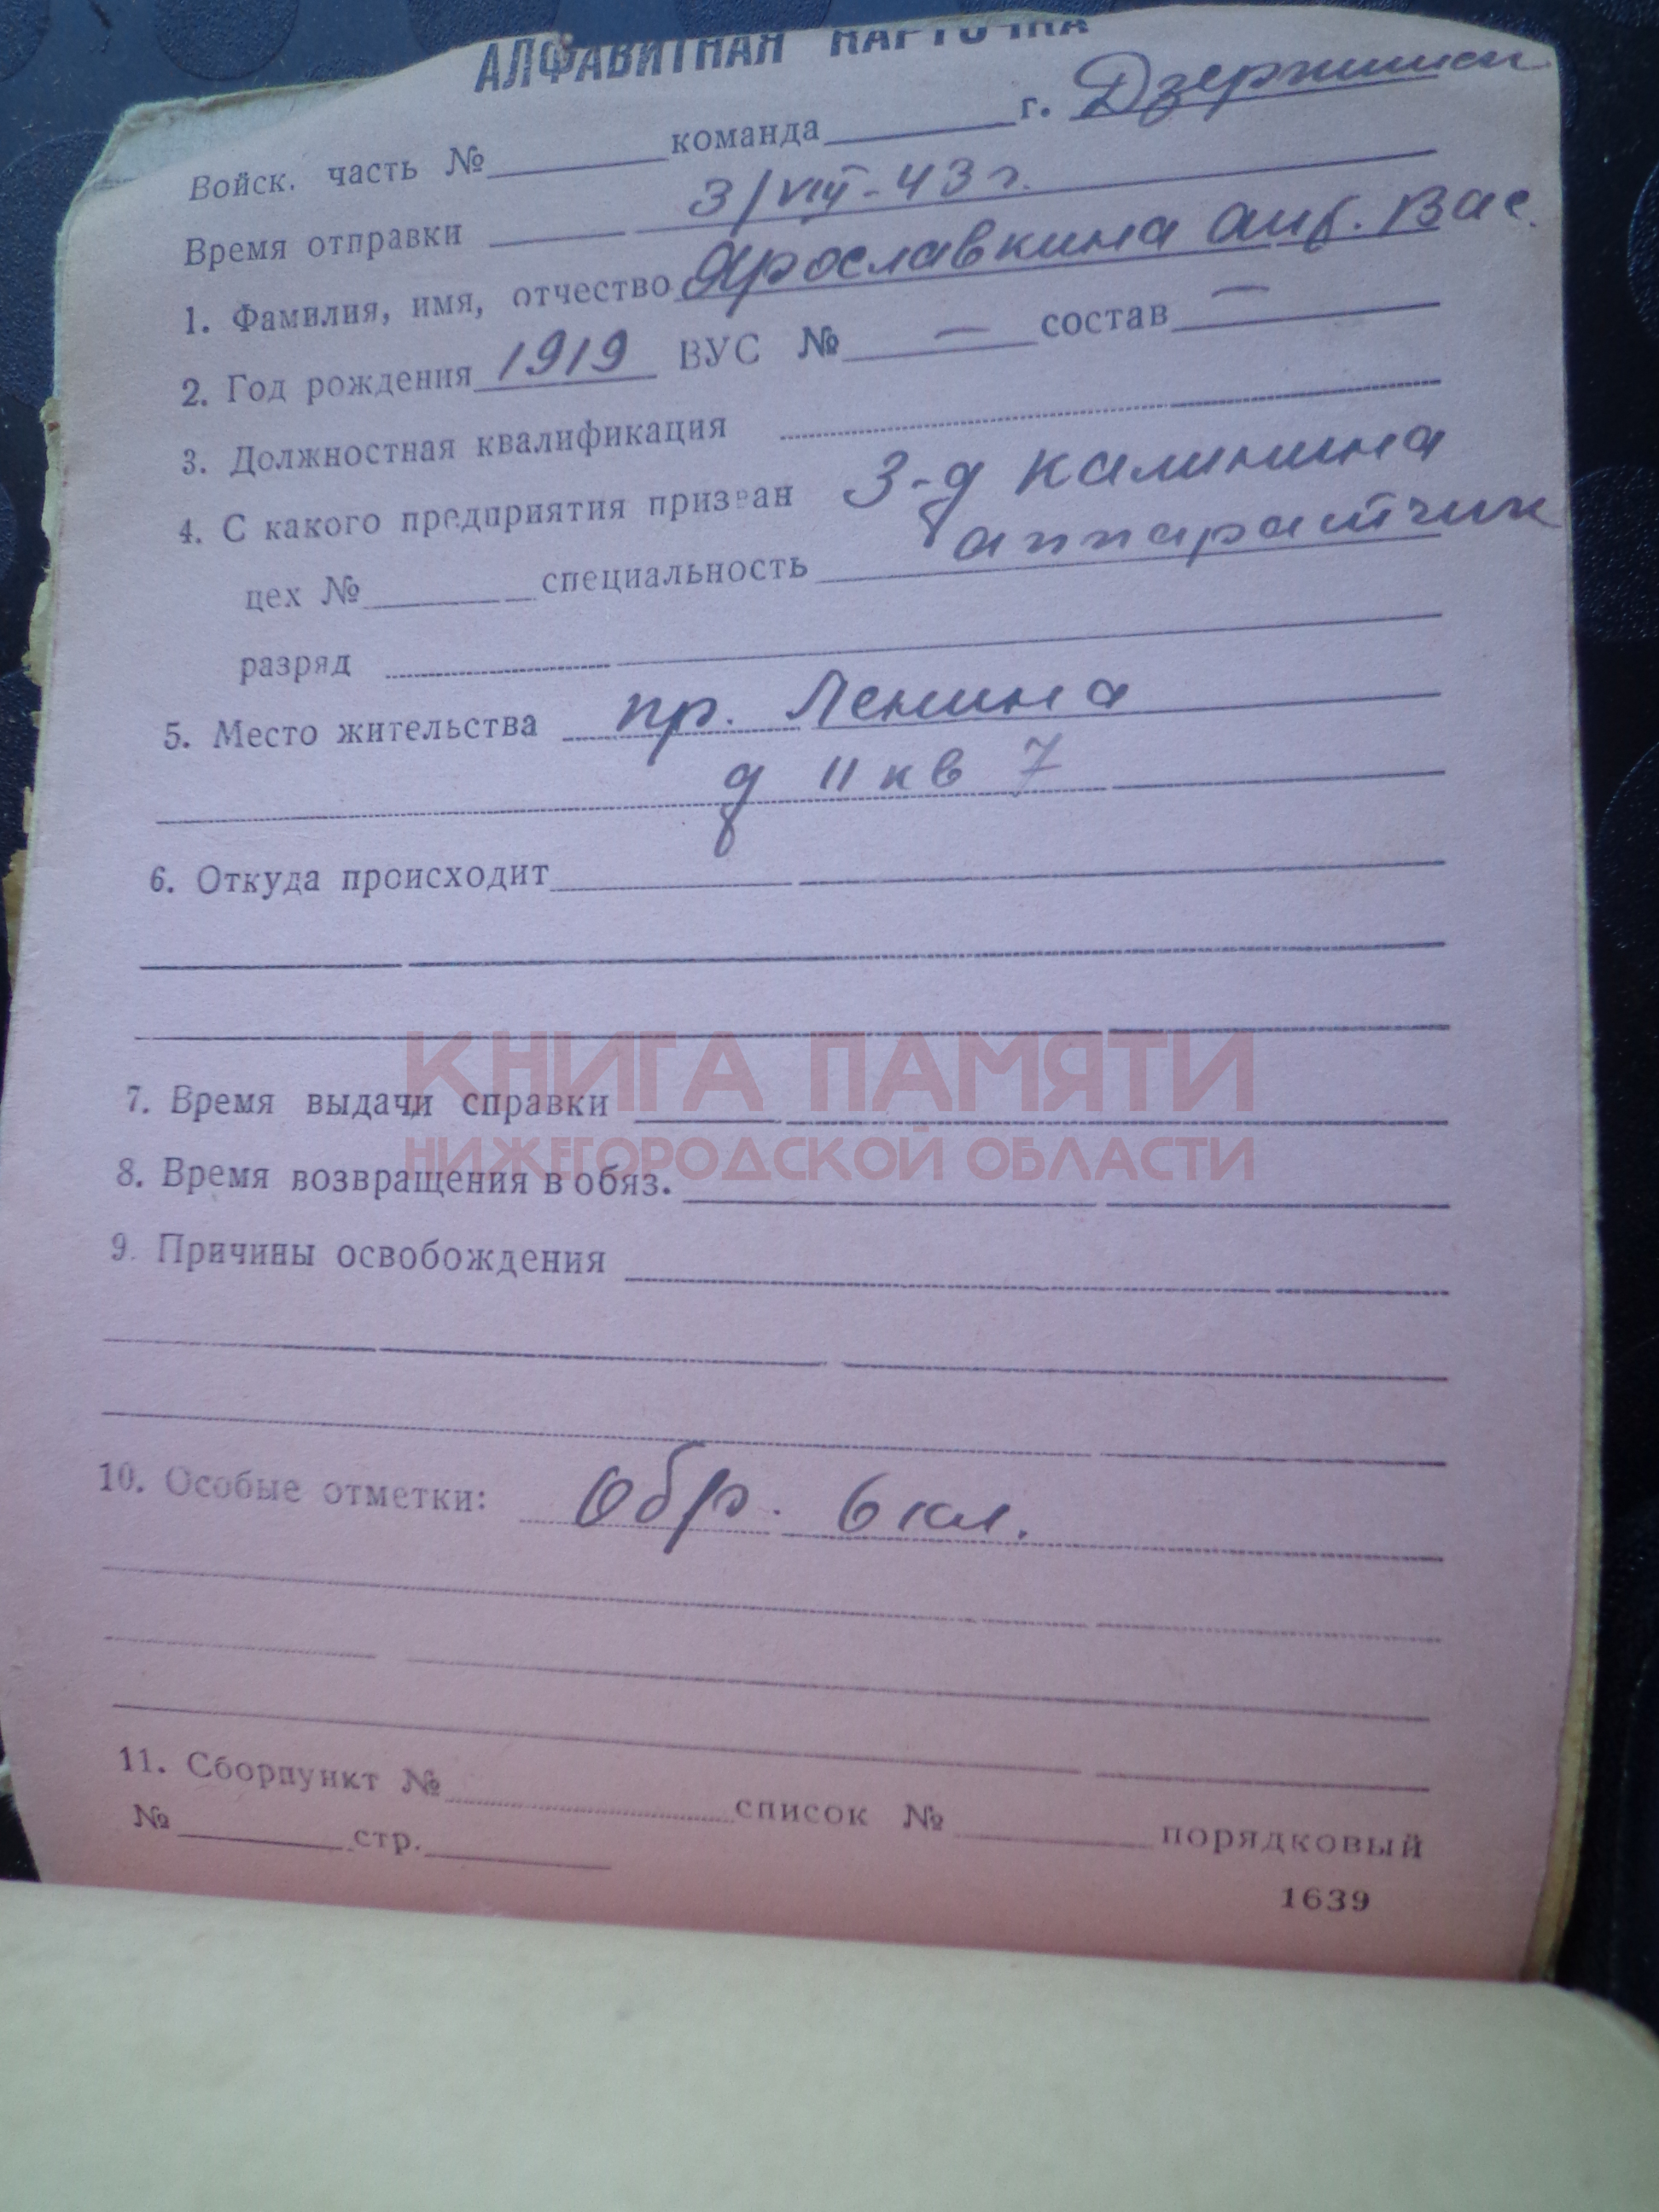 АЛФАВИТНАЯ КАРТОЧКА
Войск. часть № команда г. Дзержинск
Время отправки 3/VIII-43 г.
1. Фамилия, имя, отчество Ярославкина Вас.
2. Год рождения 1919 ВУС № — состав —
3. Должностная квалификация
4. С какого предприятия призван З-д Калинина
цех № специальность аппаратчик
разряд
5. Место жительства пр. Ленина
д 11 кв 7
6. Откуда происходит
КНИГА ПАМЯТИ
7. Время выдачи справки
НИЖЕГОРОДСКОЙ ОБЛАСТИ
8. Время возвращения в обяз.
9. Причины освобождения
10. Особые отметки: Обр. 6 кл.
11. Сборпункт № список № порядковый
№ стр.
1639